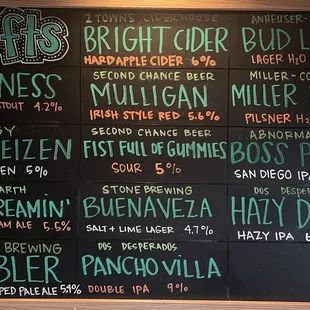 fts
2 TOWNS CIDERHOUSE
BRIGHT CIDER
HARD APPLE CIDER 6%
ANHEUSER-
BUD L
LAGER H2O
NESS
TOUT 4.2%
SECOND CHANCE BEER
MULLIGAN
IRISH STYLE RED 5.6%
MILLER-C
MILLER
PILSNER H2
EIZEN
EN 5%
SECOND CHANCE BEER
FIST FULL OF GUMMIES
SOUR 5%
ABNORMA
BOSS P
SAN DIEGO IPA
ARTH
REAMIN'
AM ALE 5.5%
STONE BREWING
BUENAVEZA
SALT + LIME LAGER 4.7%
DOS DESPER
HAZY D
HAZY IPA
BREWING
BLER
PED PALE ALE 5.4%
DOS DESPERADOS
PANCHO VILLA
DOUBLE IPA 9%